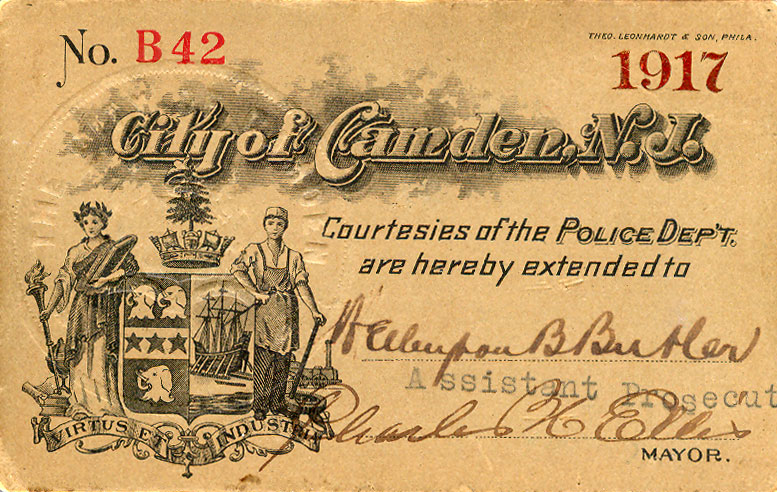 No. B42
THEO. LEONHARDT & SON, PHILA.
1917
City of Camden, N.J.
Courtesies of the POLICE DEP'T.
are hereby extended to
B Butler
Assistant Prosecut
Charles H Ellis
MAYOR.
VIRTUS ET INDUSTRIA